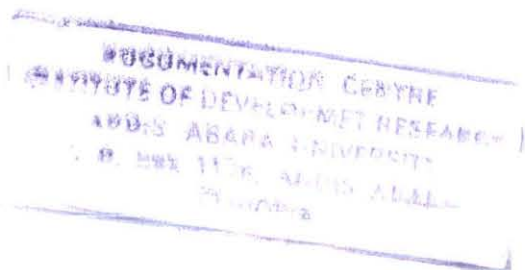 DOCUMENTATION CENTRE
INSTITUTE OF DEVELOPMET RESEARCH
ADDIS ABABA UNIVERSITY
P. BOX 1176, ADDIS ABABA